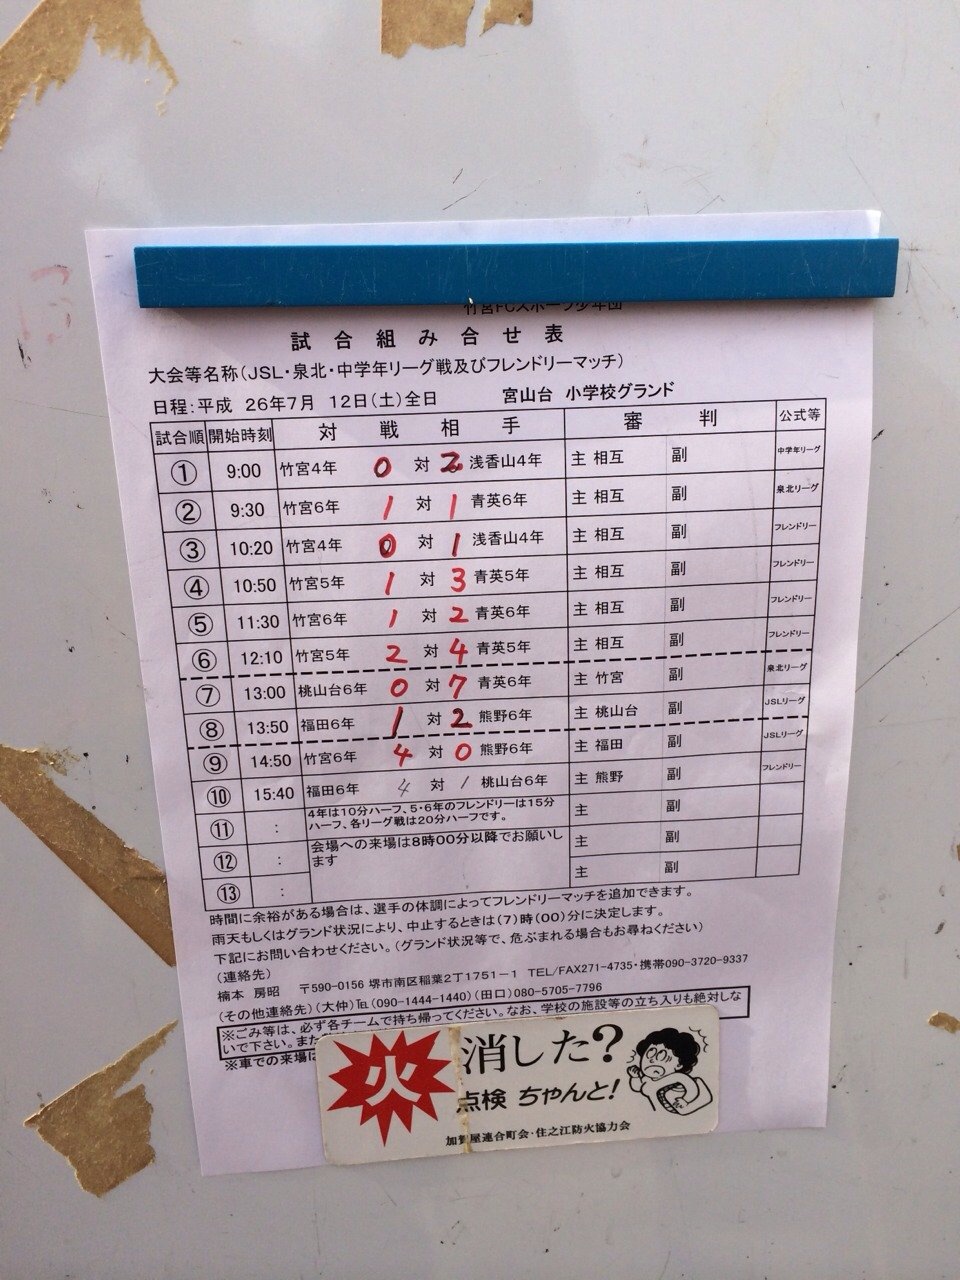 竹宮FCスポーツ少年団
試合組み合せ表
大会等名称(JSL・泉北・中学年リーグ戦及びフレンドリーマッチ)
日程:平成 26年7月 12日(土)全日 宮山台 小学校グランド
試合順 開始時刻 対戦相手 審判 公式等
① 9:00 竹宮4年 0 対 2 浅香山4年 主 相互 副 中学年リーグ
② 9:30 竹宮6年 1 対 1 青英6年 主 相互 副 泉北リーグ
③ 10:20 竹宮4年 0 対 1 浅香山4年 主 相互 副 フレンドリー
④ 10:50 竹宮5年 1 対 3 青英5年 主 相互 副 フレンドリー
⑤ 11:30 竹宮6年 1 対 2 青英6年 主 相互 副 フレンドリー
⑥ 12:10 竹宮5年 2 対 4 青英5年 主 相互 副 フレンドリー
⑦ 13:00 桃山台6年 0 対 7 青英6年 主 竹宮 副 泉北リーグ
⑧ 13:50 福田6年 1 対 2 熊野6年 主 桃山台 副 JSLリーグ
⑨ 14:50 竹宮6年 4 対 0 熊野6年 主 福田 副 JSLリーグ
⑩ 15:40 福田6年 4 対 1 桃山台6年 主 熊野 副 フレンドリー
⑪ : 4年は10分ハーフ、5・6年のフレンドリーは15分 主 副
ハーフ、各リーグ戦は20分ハーフです。
⑫ : 会場への来場は8時00分以降でお願いし 主 副
ます
⑬ : 主 副
時間に余裕がある場合は、選手の体調によってフレンドリーマッチを追加できます。
雨天もしくはグランド状況により、中止するときは(7)時(00)分に決定します。
下記にお問い合わせください。(グランド状況等で、危ぶまれる場合もお尋ねください)
(連絡先)
楠本 房昭 〒590-0156 堺市南区稲葉2丁1751-1 TEL/FAX271-4735・携帯090-3720-9337
(その他連絡先)(大仲)℡(090-1444-1440)(田口)080-5705-7796
※ごみ等は、必ず各チームで持ち帰ってください。なお、学校の施設等の立ち入りも絶対しな
いで下さい。また
※車での来場は
火 消した?
点検 ちゃんと!
加賀屋連合町会・住之江防火協力会